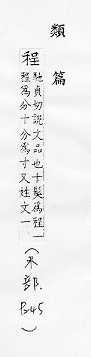 類篇
程
馳貞切說文品也十髮為程一
程為分十分為寸又姓文一
(禾部. P.245)